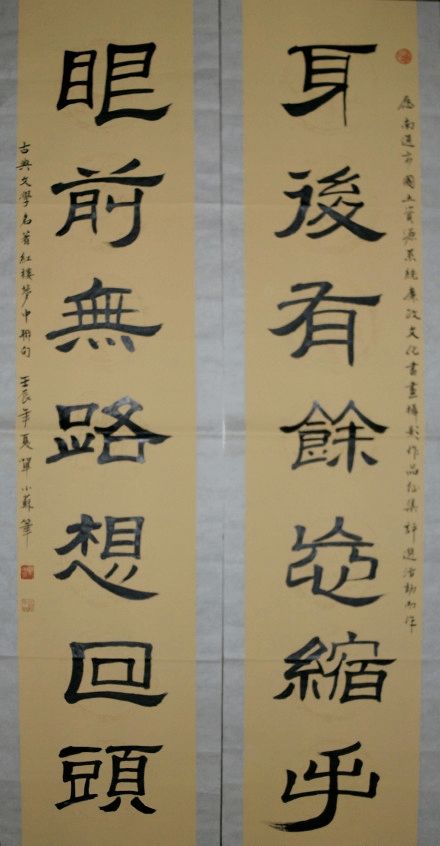 應南通市國土資源系統廉政文化書畫攝影作品征集評選活動而作
身後有餘忘縮手
眼前無路想回頭
古典文學名著紅樓夢中聯句 壬辰年夏單小蘇筆